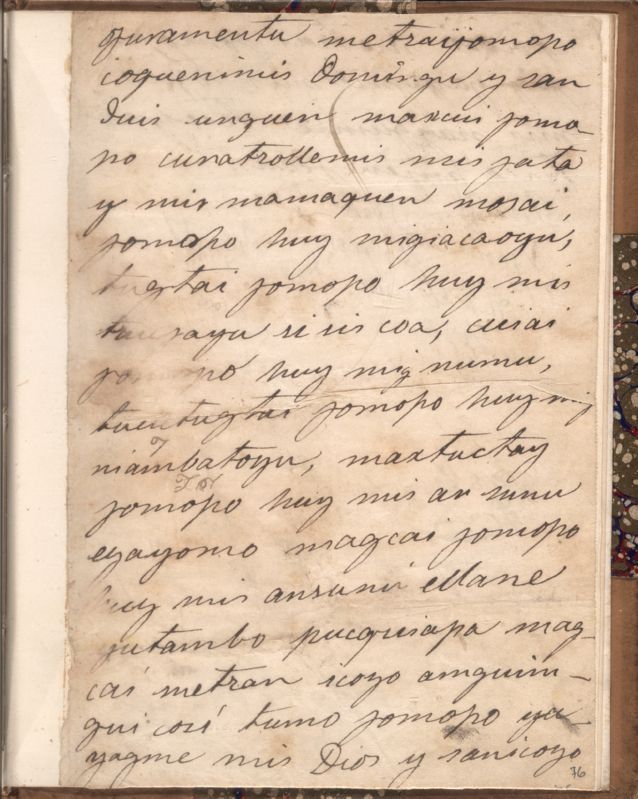 juramentu metzaijomopo
coquenimis Domingu y san
Duis unquen maxcui jomo-
po curatrollemis mis jata
y mis mamaquen mosai,
jomopo huy migiacaoyu,
tugtai jomopo huy mis
sayu si sis coa, cuiai
jomopo huy mig numu,
tucutugtai jomopo huy mig
niambatoyu, maxtuctay
jomopo huy mis ar numu
eyayomo magcai jomopo
huy mis ansuni ellane
jutambo pucquiapa mag-
cai metzan icoyo amguim-
qui cosi tumo jomopo ya-
yagme mis Dios y sanicoyo
76